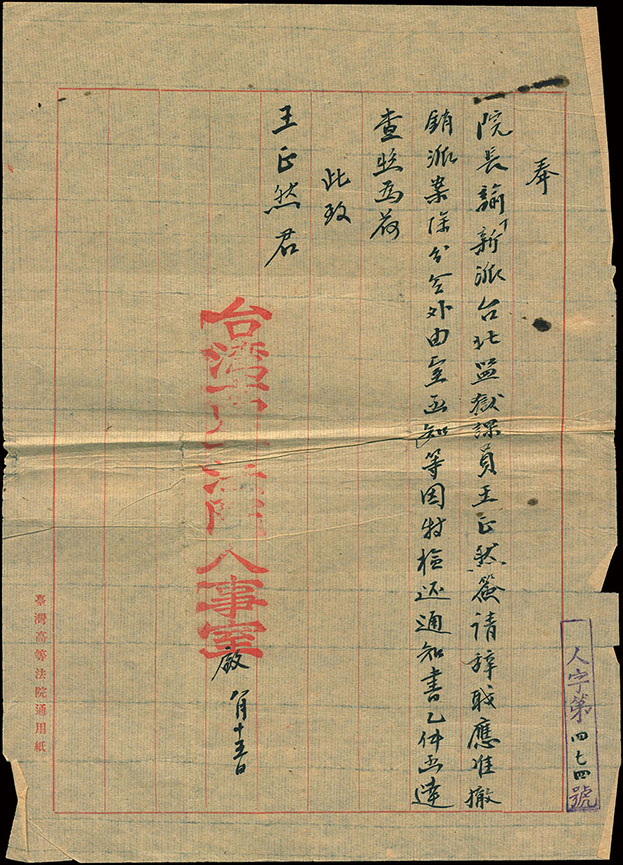 人字第四七四號
奉
院長諭下新派台北監獄課員王正然簽請辭職應准撤
銷派案除分令外由室函知等因特檢還通知書乙件函達
查照為荷
此致
王正然君
台湾高等法院人事室
啟 八月十五日
臺灣高等法院通用紙